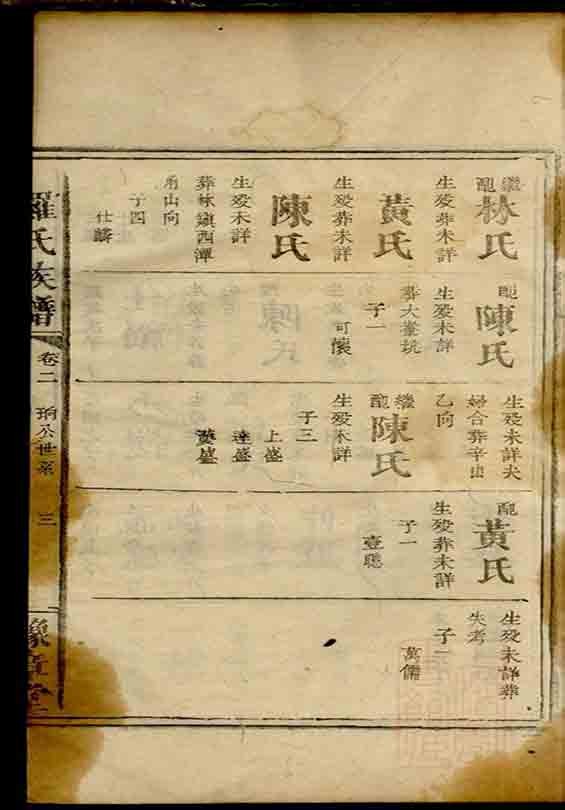 羅氏族譜
卷二
珦公世系
三
豫章堂
繼配林氏
生歿葬未詳
黃氏
生歿葬未詳
陳氏
生歿未詳
葬林鎮西潭
山向
子四
仕麟
配陳氏
生歿未詳
葬大坑
子一
可懷
生歿未詳夫
婦合葬辛山
乙向
繼配陳氏
生歿未詳
子三
上盛
達盛
贊盛
配黃氏
生歿葬未詳
子一
壹聰
生歿未詳葬
失考
子一
萬儒